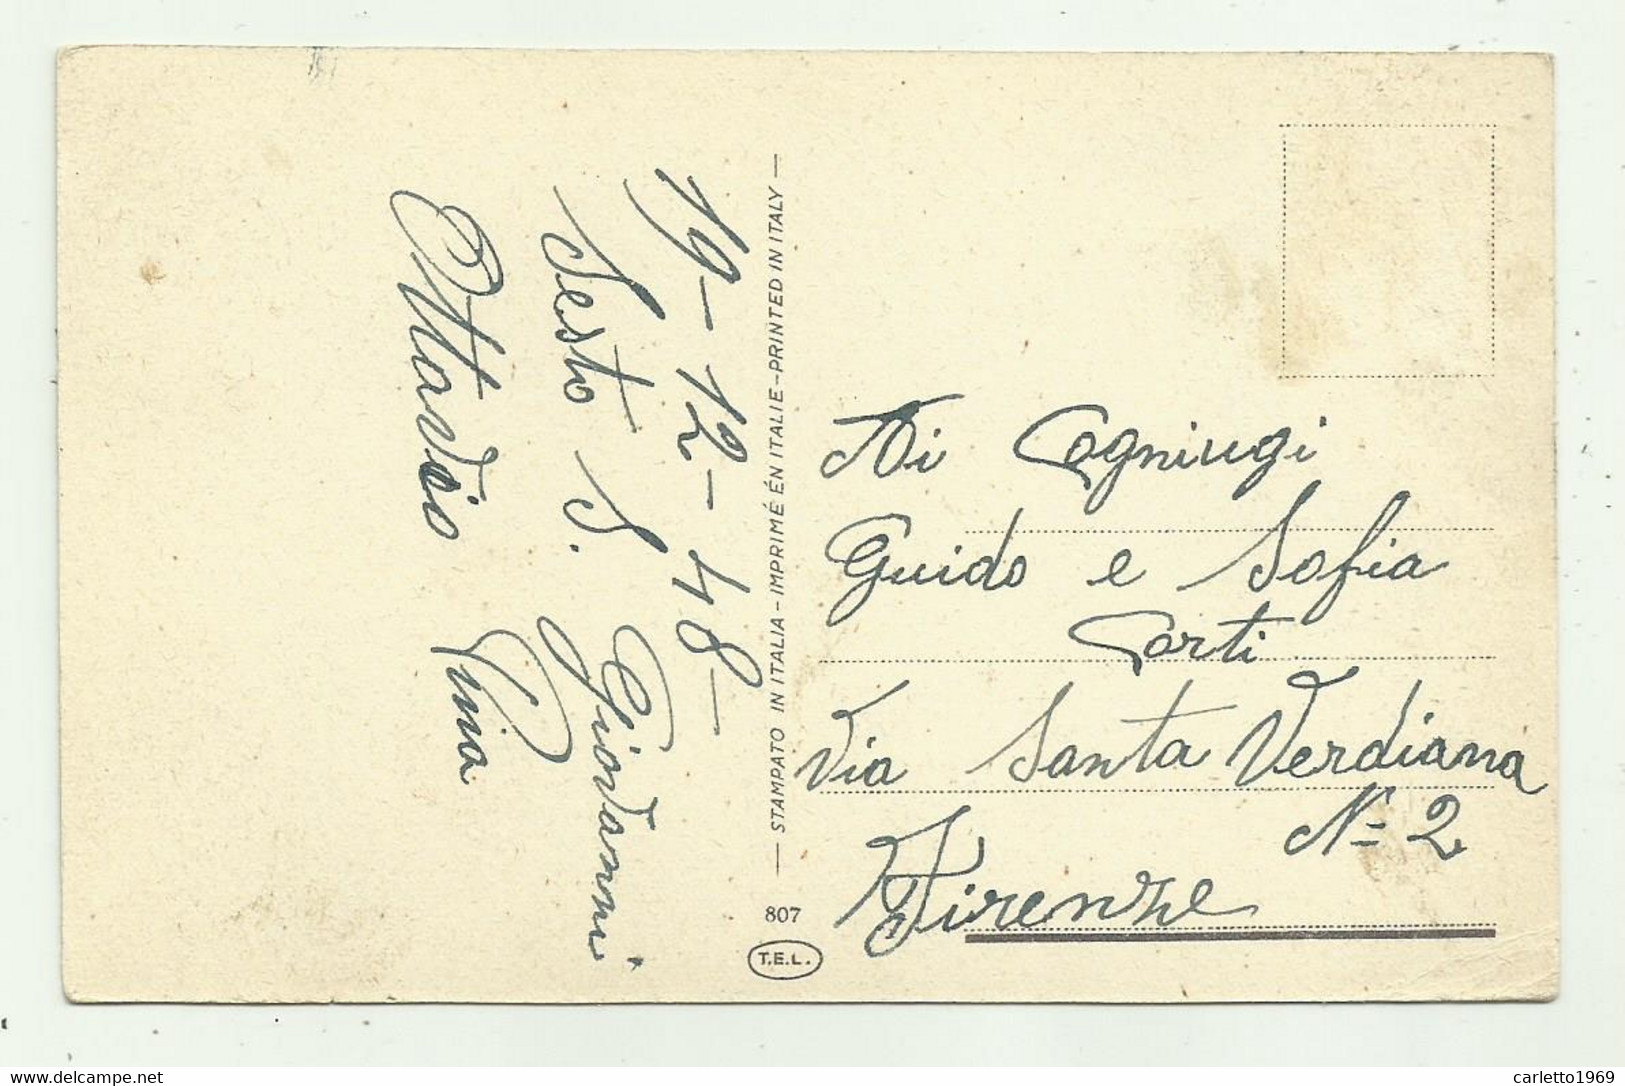 19-12-48-
Sesto S. Giovanni
Ottavio Pina
— STAMPATO IN ITALIA - IMPRIMÉ ÉN ITALIE - PRINTED IN ITALY —
807
T.E.L.
Ai Cogniugi
Guido e Sofia
Corti
Via Santa Verdiana
N= 2
Firenze
www.delcampe.net
carletto1969